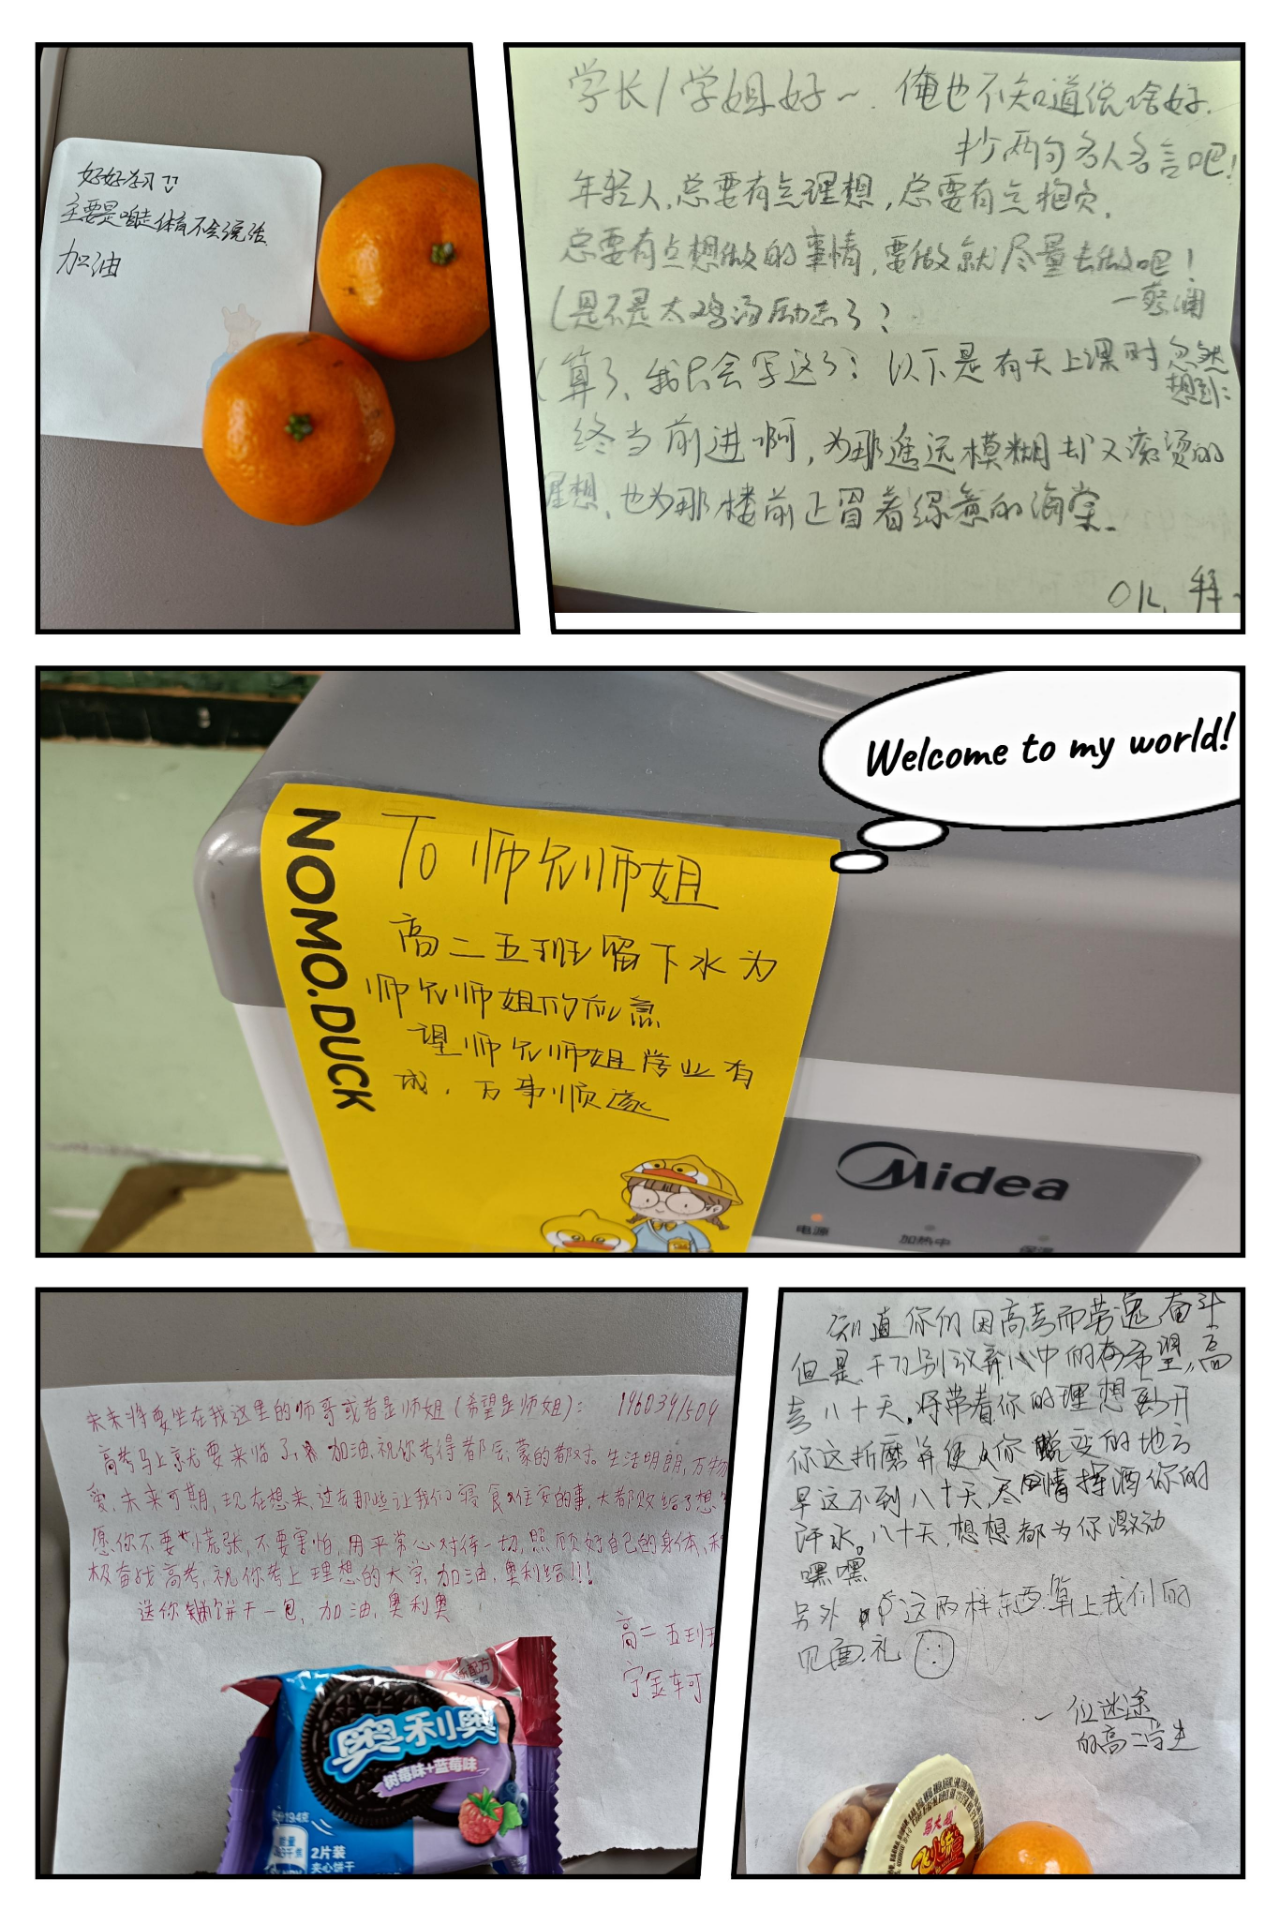 好好学习
主要是咱走体育不会说话
加油
学长/学姐好~. 俺也不知道说啥好.
抄两句名人名言吧!
年轻人,总要有点理想,总要有点抱负.
总要有点想做的事情,要做就尽量去做吧!
—蔡澜
(是不是太鸡汤励志了?
(算了,我只会写这了? 以下是有天上课时忽然
想到:
终当前进啊,为那遥远模糊却又滚烫的
理想,也为那楼前正冒着绿意的海棠.
OK, 拜~
Welcome to my world!
NOMO.DUCK
To 师兄师姐
高二五班留下水为
师兄师姐的应急
望师兄师姐学业有
成,万事顺遂
Midea
电源
加热中
保温
未来将要坐在我这里的师哥或者是师姐(希望是师姐): 1960341504
高考马上就要来临了, 加油,祝你考得都会,蒙的都对。生活明朗,万物
爱,未来可期,现在想来,过去那些让我们寝食难安的事,大都败给了想
愿你不要慌张,不要害怕,用平常心对待一切,照顾好自己的身体,积
极奋战高考,祝你考上理想的大学,加油,奥利给!!!
送你饼干一包,加油,奥利奥
高二五班
宁金轲
奥利奥
树莓味+蓝莓味
2片装
夹心饼干
知道你们因高考而劳逸奋斗
但是千万别放弃心中的希望,高
考八十天,将带着你的理想离开
你这折磨并使你蜕变的地方
早这不到八十天,尽情挥洒你的
汗水。八十天,想想都为你激动
嘿嘿
另外 这两样东西算上我们的
见面礼
一位迷途
的高二学生